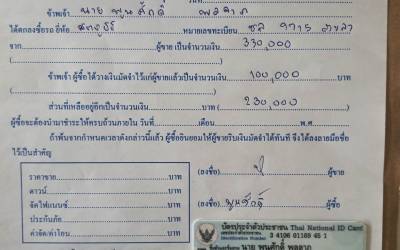 ข้าพเจ้า นาย พูนศักดิ์ พลลาภ
ได้ตกลงซื้อรถ ยี่ห้อ หมายเลขทะเบียน 9775 สงขลา
จาก ผู้ขาย เป็นจำนวนเงิน 330,000
ข้าพเจ้า ผู้ซื้อได้วางเงินมัดจำไว้แก่ผู้ขายแล้วเป็นจำนวนเงิน 100,000 บาท
ส่วนที่เหลืออยู่อีกเป็นจำนวนเงิน 230,000 บาท
ผู้ซื้อจะต้องนำมาชำระให้ครบถ้วนภายใน วันที่ เดือน พ.ศ.
ถ้าพ้นจากกำหนดเวลาดังกล่าวนี้แล้ว ผู้ซื้อยินยอมให้ผู้ขายริบเงินมัดจำได้ทันที จึงได้ลงลายมือชื่อ
ไว้เป็นสำคัญ
ราคาขาย บาท (ลงชื่อ) ผู้ซื้อ
ดาวน์ บาท
จัดไฟแนนซ์ บาท (ลงชื่อ) พูนศักดิ์ ผู้ขาย
ประกันภัย บาท
ค่าจัด/ค่าโอน บาท
บัตรประจำตัวประชาชน Thai National ID Card
3 4106 01169 45 1
Identification Number
นาย พูนศักดิ์ พลลาภ